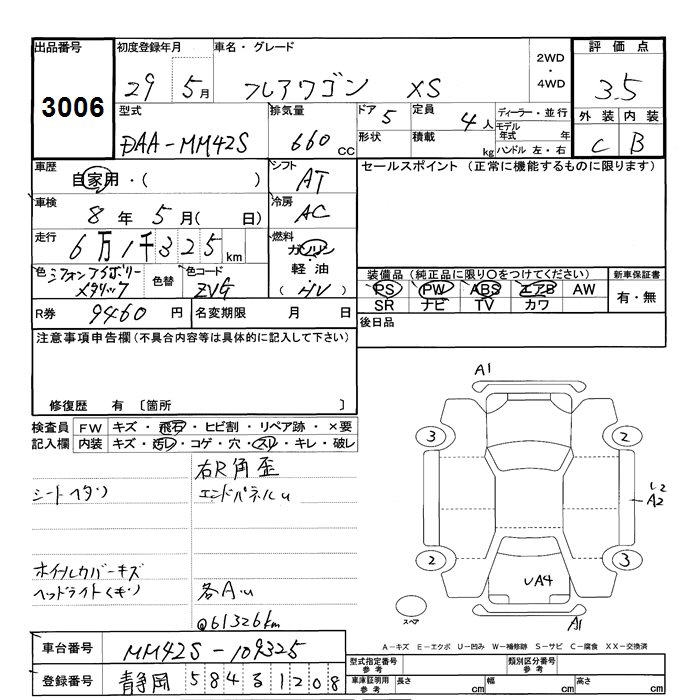 出品番号 初度登録年月 車名・グレード 2WD・4WD 評価点
3006 29 5月 フレアワゴン XS 3.5
型式 排気量 ドア 5 定員 4人 ディーラー・並行 外装 内装
DAA-MM42S 660cc 形状 積載 kg モデル年式 年 C B
ハンドル 左・右
車歴 シフト セールスポイント (正常に機能するものに限ります)
自家用・( ) AT
車検 冷房
8年 5月( 日) AC
走行 燃料
6万1千325km ガソリン
色 シフォンアイボリーメタリック 色替 色コード 軽油 装備品 (純正品に限り○をつけてください) 新車保証書
ZVG (HV) PS PW ABS エアB AW 有・無
SR ナビ TV カワ
R券 9460円 名変期限 月 日 後日品
注意事項申告欄 (不具合内容等は具体的に記入して下さい)
修復歴 有 〔箇所 〕
A1
検査員 FW キズ・飛石・ヒビ割・リペア跡・×要
記入欄 内装 キズ・汚レ・コゲ・穴・スレ・キレ・破レ
3 2
右R角歪
シートヘタリ エンドパネルu
A2
2 3
ホイルカバーキズ UA4
ヘッドライトくもり 各Au
スペア
@61326km A1
A-キズ E-エクボ U-凹み W-補修跡 S-サビ C-腐食 XX-交換済
車台番号 MM42S-109325
型式指定番号 参考 類別区分番号 参考
登録番号 静岡 584 る 1208 車庫証明用 参考 長さ cm 幅 cm 高さ cm